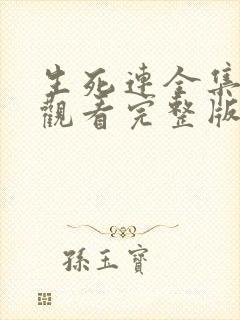 生死連全集
觀看完整版
孫玉寶